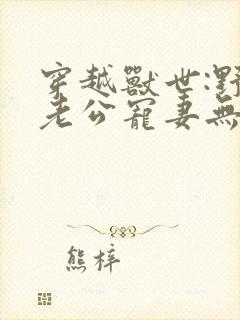 穿越獸世:野
老公寵妻無
熊梓